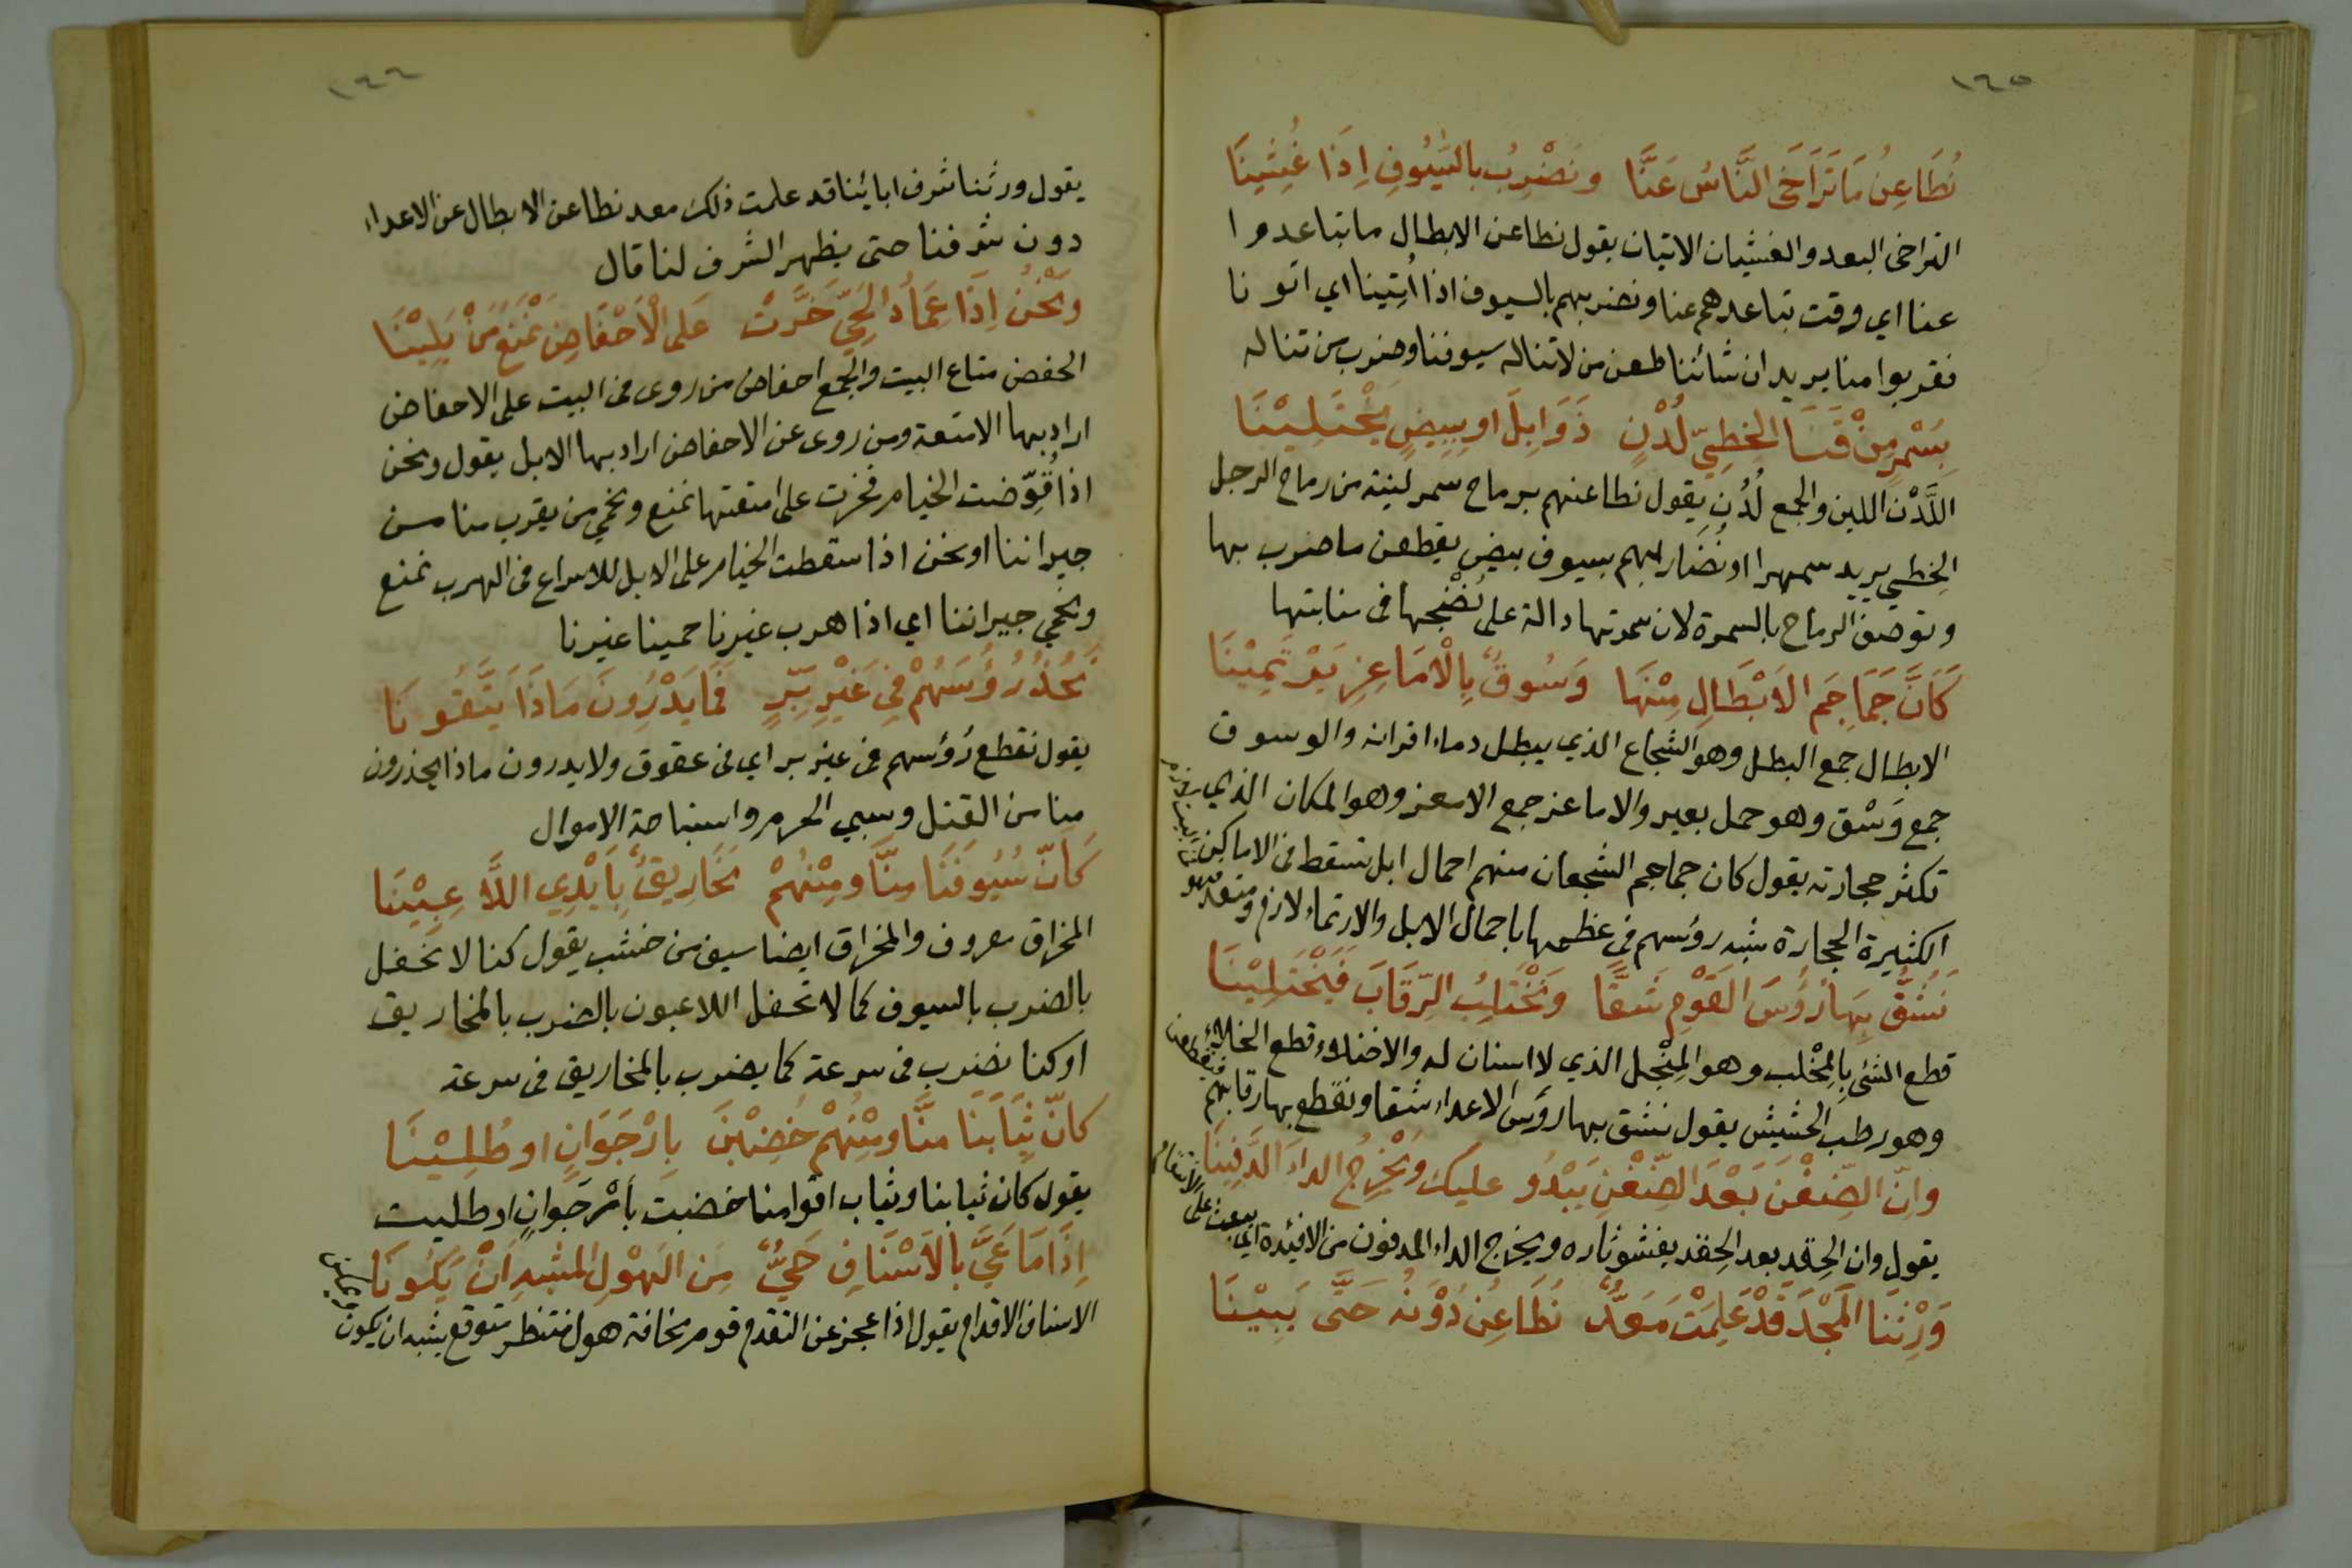 ١٦٥
نُطَاعِنُ مَا تَرَاخَى النَّاسُ عَنَّا وَنَضْرِبُ بِالسُّيُوفِ اِذَا غُشِينَا
التراخى البعد والغشيان الاتيان يقول نطاعن الابطال ما تباعدوا
عنا اي وقت تباعدهم عنا ونضربهم بالسيوف اذا اُتِينا اي اتونا
فقربوا منا يريد ان شائنا طعن من لاتناله سيوفنا وضرب من تناله
بِسُمْرٍ مِنْ قَنَا الخَطِيِّ لُدْنٍ ذَوَابِلَ او بِبِيضٍ يَخْتَلِيْنَا
اللَّدْن اللين والجمع لُدُن يقول نطاعنهم برماح سمر لينة من رماح الرجل
الخِطي يريد سمهرا او نُضَاربهم بسيوف بيض يقطعن ما ضرب بها
وتوصف الرماح بالسمرة لان سمرتها دالة على نُضْجها فى منابتها
كَاَنَّ جَمَاجِمَ الاَبْطَالِ مِنْهَا وَسُوقٌ بِالْاَمَاعِزِ يَرْتَمِيْنَا
الابطال جمع البطل وهو الشجاع الذي يبطل دماء اقرانه والوسوق
جمع وَسْق وهو حمل بعير والاماعز جمع الامعز وهو المكان الذي
تكثر حجارته يقول كان جماجم الشجعان منهم احمال ابل تسقط فى الاماكن
الكثيرة الحجارة شبه رؤسهم فى عظمها باحمال الابل والارتماء لازم ومتعد
نَشُقُّ بِهَا رُؤُسَ القَوْمِ شَقًّا وَنَخْتَلِبُ الرِّقَابَ فَيَخْتَلِيْنَا
قطع الشئ بِالمِخْلب وهو المِنْجل الذي لا اسنان له والاختلاء قطع الخلا
وهو رطب الحشيش يقول نشق بها رؤس الاعداء شقا ونقطع بها رقابهم
فيقطعن
وَاِنَّ الضِّغْنَ بَعْدَ الضِّغْنِ يَبْدُو عليك وَيُخْرِجُ الداءَ الدَّفِينَا
يقول وان الحِقد بعد الحِقد يفشو ثاره ويخرج الداء المدفون من الافئدة اي يبعث على
الانتقام
وَرِثْنَا المَجْدَ قَدْ عَلِمَتْ مَعَدٌّ نُطَاعِنُ دُوْنَهُ حَتَّى يَبِيْنَا
١٦٦
يقول ورثنا شرف ابائينا قد علمت ذلك معد نطاعن الابطال عن الاعداء
دون شرفنا حتى يظهر الشرف لنا قال
وَنَحْنُ اِذَا عِمَادُ الحَيِّ خَرَّتْ عَلَى الْاَحْفَاضِ نَمْنَعُ مَنْ يَلِيْنَا
الحفض متاع البيت والجمع احفاض من روى فى البيت على الاحفاض
اراد بها الامتعة ومن روى عن الاحفاض اراد بها الابل يقول ونحن
اذا قُوِّضت الخيام فخرت على امتعتها نمنع ونحمي من يقرب منا من
جيراننا او نحن اذا سقطت الخيام على الابل للاسراع فى الهرب نمنع
ونحمي جيراننا اي اذا هرب غيرنا حمينا غيرنا
نَجُذُّ رُؤُسَهُمْ فِي غَيْرِ بِرٍّ فَمَا يَدْرُونَ مَاذَا يَتَّقُونَا
يقول نقطع رُؤسهم فى غير بر اي فى عقوق ولا يدرون ماذا يحذرون
منا من القتل وسبي الحرم واستباحة الاموال
كَاَنَّ سُيُوفَنَا مِنَّا وَمِنْهُمْ مَخَارِيقٌ بِاَيْدِي اللَّاعِبِيْنَا
المخراق معروف والمخراق ايضا سيف من خشب يقول كنا لا نحفل
بالضرب بالسيوف كما لا تحفل اللاعبون بالضرب بالمخاريق
او كنا نضرب فى سرعة كما يضرب بالمخاريق فى سرعة
كاَنَّ ثِيَابَنَا مِنَّا وَمِنْهُمْ خُضِبْنَ بِاُرْجَوَانٍ او طُلِيْنَا
يقول كان ثيابنا وثياب اقوامنا خضبت بأرْجَوانٍ او طليت
اِذَا مَا عَيَّ بِالاَسْنَافِ حَيٌّ مِنَ الهَوْلِ المشبهِ اَنْ يَكُونَا
الاسناف الاقدام يقول اذا عجز عن التقدم قوم مخافة هول منتظر متوقع يشبه ان يكون